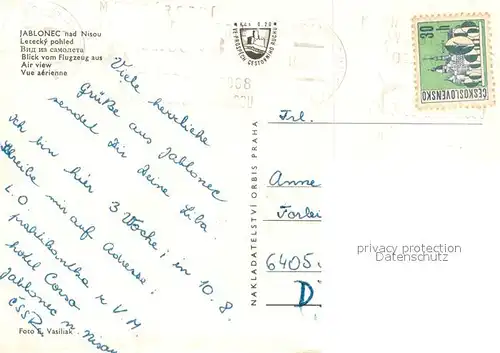 JABLONEC nad Nisou
Letecký pohled
Вид из самолета
Blick vom Flugzeug aus
Air view
Vue aérienne
Kčs 0.20
VE PROSPĚCH CESTOVNÍHO RUCHU
30 h
ČESKOSLOVENSKO
Viele herrliche
Grüße aus Jablonec
sendet Dir Deine Liba.
Ich bin hier 3 Woche; in 10. 8.
Schreibe mir auf Adresse:
L. O praktikantka k V. M.
hotel Corso
Jablonec n. Nisou
ČSSR
Foto E. Vasiliak
NAKLADATELSTVÍ ORBIS PRAHA
Frl.
Anne
6405.
D
privacy protection
Datenschutz